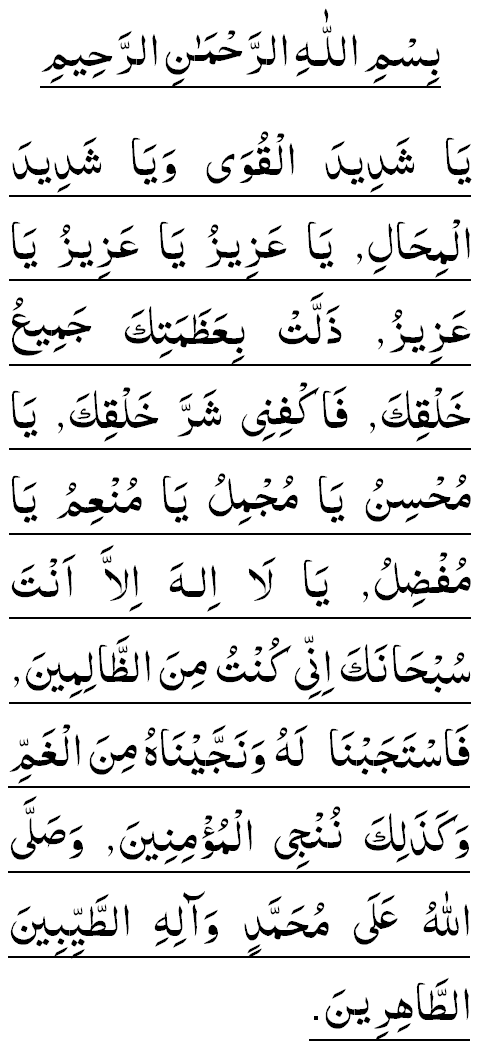 بِسْمِ اللّٰهِ الرَّحْمٰنِ الرَّحِيمِ
يَا شَدِيدَ الْقُوَى وَيَا شَدِيدَ
الْمِحَالِ, يَا عَزِيزُ يَا عَزِيزُ يَا
عَزِيزُ, ذَلَّتْ بِعَظَمَتِكَ جَمِيعُ
خَلْقِكَ, فَاكْفِنِى شَرَّ خَلْقِكَ, يَا
مُحْسِنُ يَا مُجْمِلُ يَا مُنْعِمُ يَا
مُفْضِلُ, يَا لَا اِلهَ اِلاَّ اَنْتَ
سُبْحَانَكَ اِنِّي كُنْتُ مِنَ الظَّالِمِينَ,
فَاسْتَجَبْنَا لَهُ وَنَجَّيْنَاهُ مِنَ الْغَمِّ
وَكَذَلِكَ نُنْجِى الْمُؤْمِنِينَ, وَصَلَّى
اللهُ عَلَى مُحَمَّدٍ وَآلِهِ الطَّيِّبِينَ
الطَّاهِرِينَ.